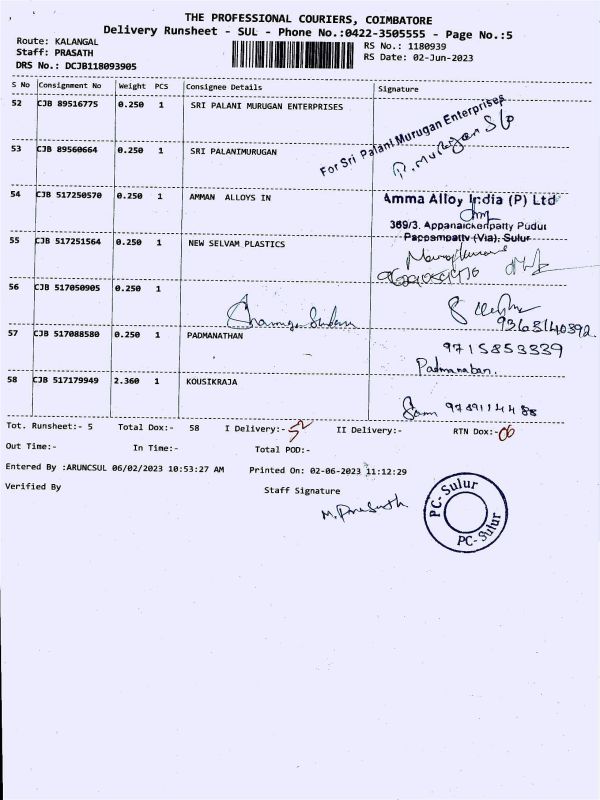 THE PROFESSIONAL COURIERS, COIMBATORE
Delivery Runsheet - SUL - Phone No.:0422-3505555 - Page No.:5
Route: KALANGAL
Staff: PRASATH
DRS No.: DCJB118093905
RS No.: 1180939
RS Date: 02-Jun-2023
S No Consignment No Weight PCS Consignee Details Signature
52 CJB 89516775 0.250 1 SRI PALANI MURUGAN ENTERPRISES
For Sri Palani Murugan Enterprises
53 CJB 89560664 0.250 1 SRI PALANIMURUGAN
54 CJB 517250570 0.250 1 AMMAN ALLOYS IN
Amma Alloy India (P) Ltd
369/3, Appanaickenpatty Pudur
Pappampatty (Via), Sulur
55 CJB 517251564 0.250 1 NEW SELVAM PLASTICS
56 CJB 517050905 0.250 1
57 CJB 517088580 0.250 1 PADMANATHAN
9715853339
Padmanaban.
58 CJB 517179949 2.360 1 KOUSIKRAJA
Tot. Runsheet:- 5 Total Dox:- 58 I Delivery:- 52 II Delivery:- RTN Dox:-06
Out Time:- In Time:- Total POD:-
Entered By :ARUNCSUL 06/02/2023 10:53:27 AM Printed On: 02-06-2023 11:12:29
Verified By Staff Signature
M. Prasath
PC-Sulur
PC-Sulur